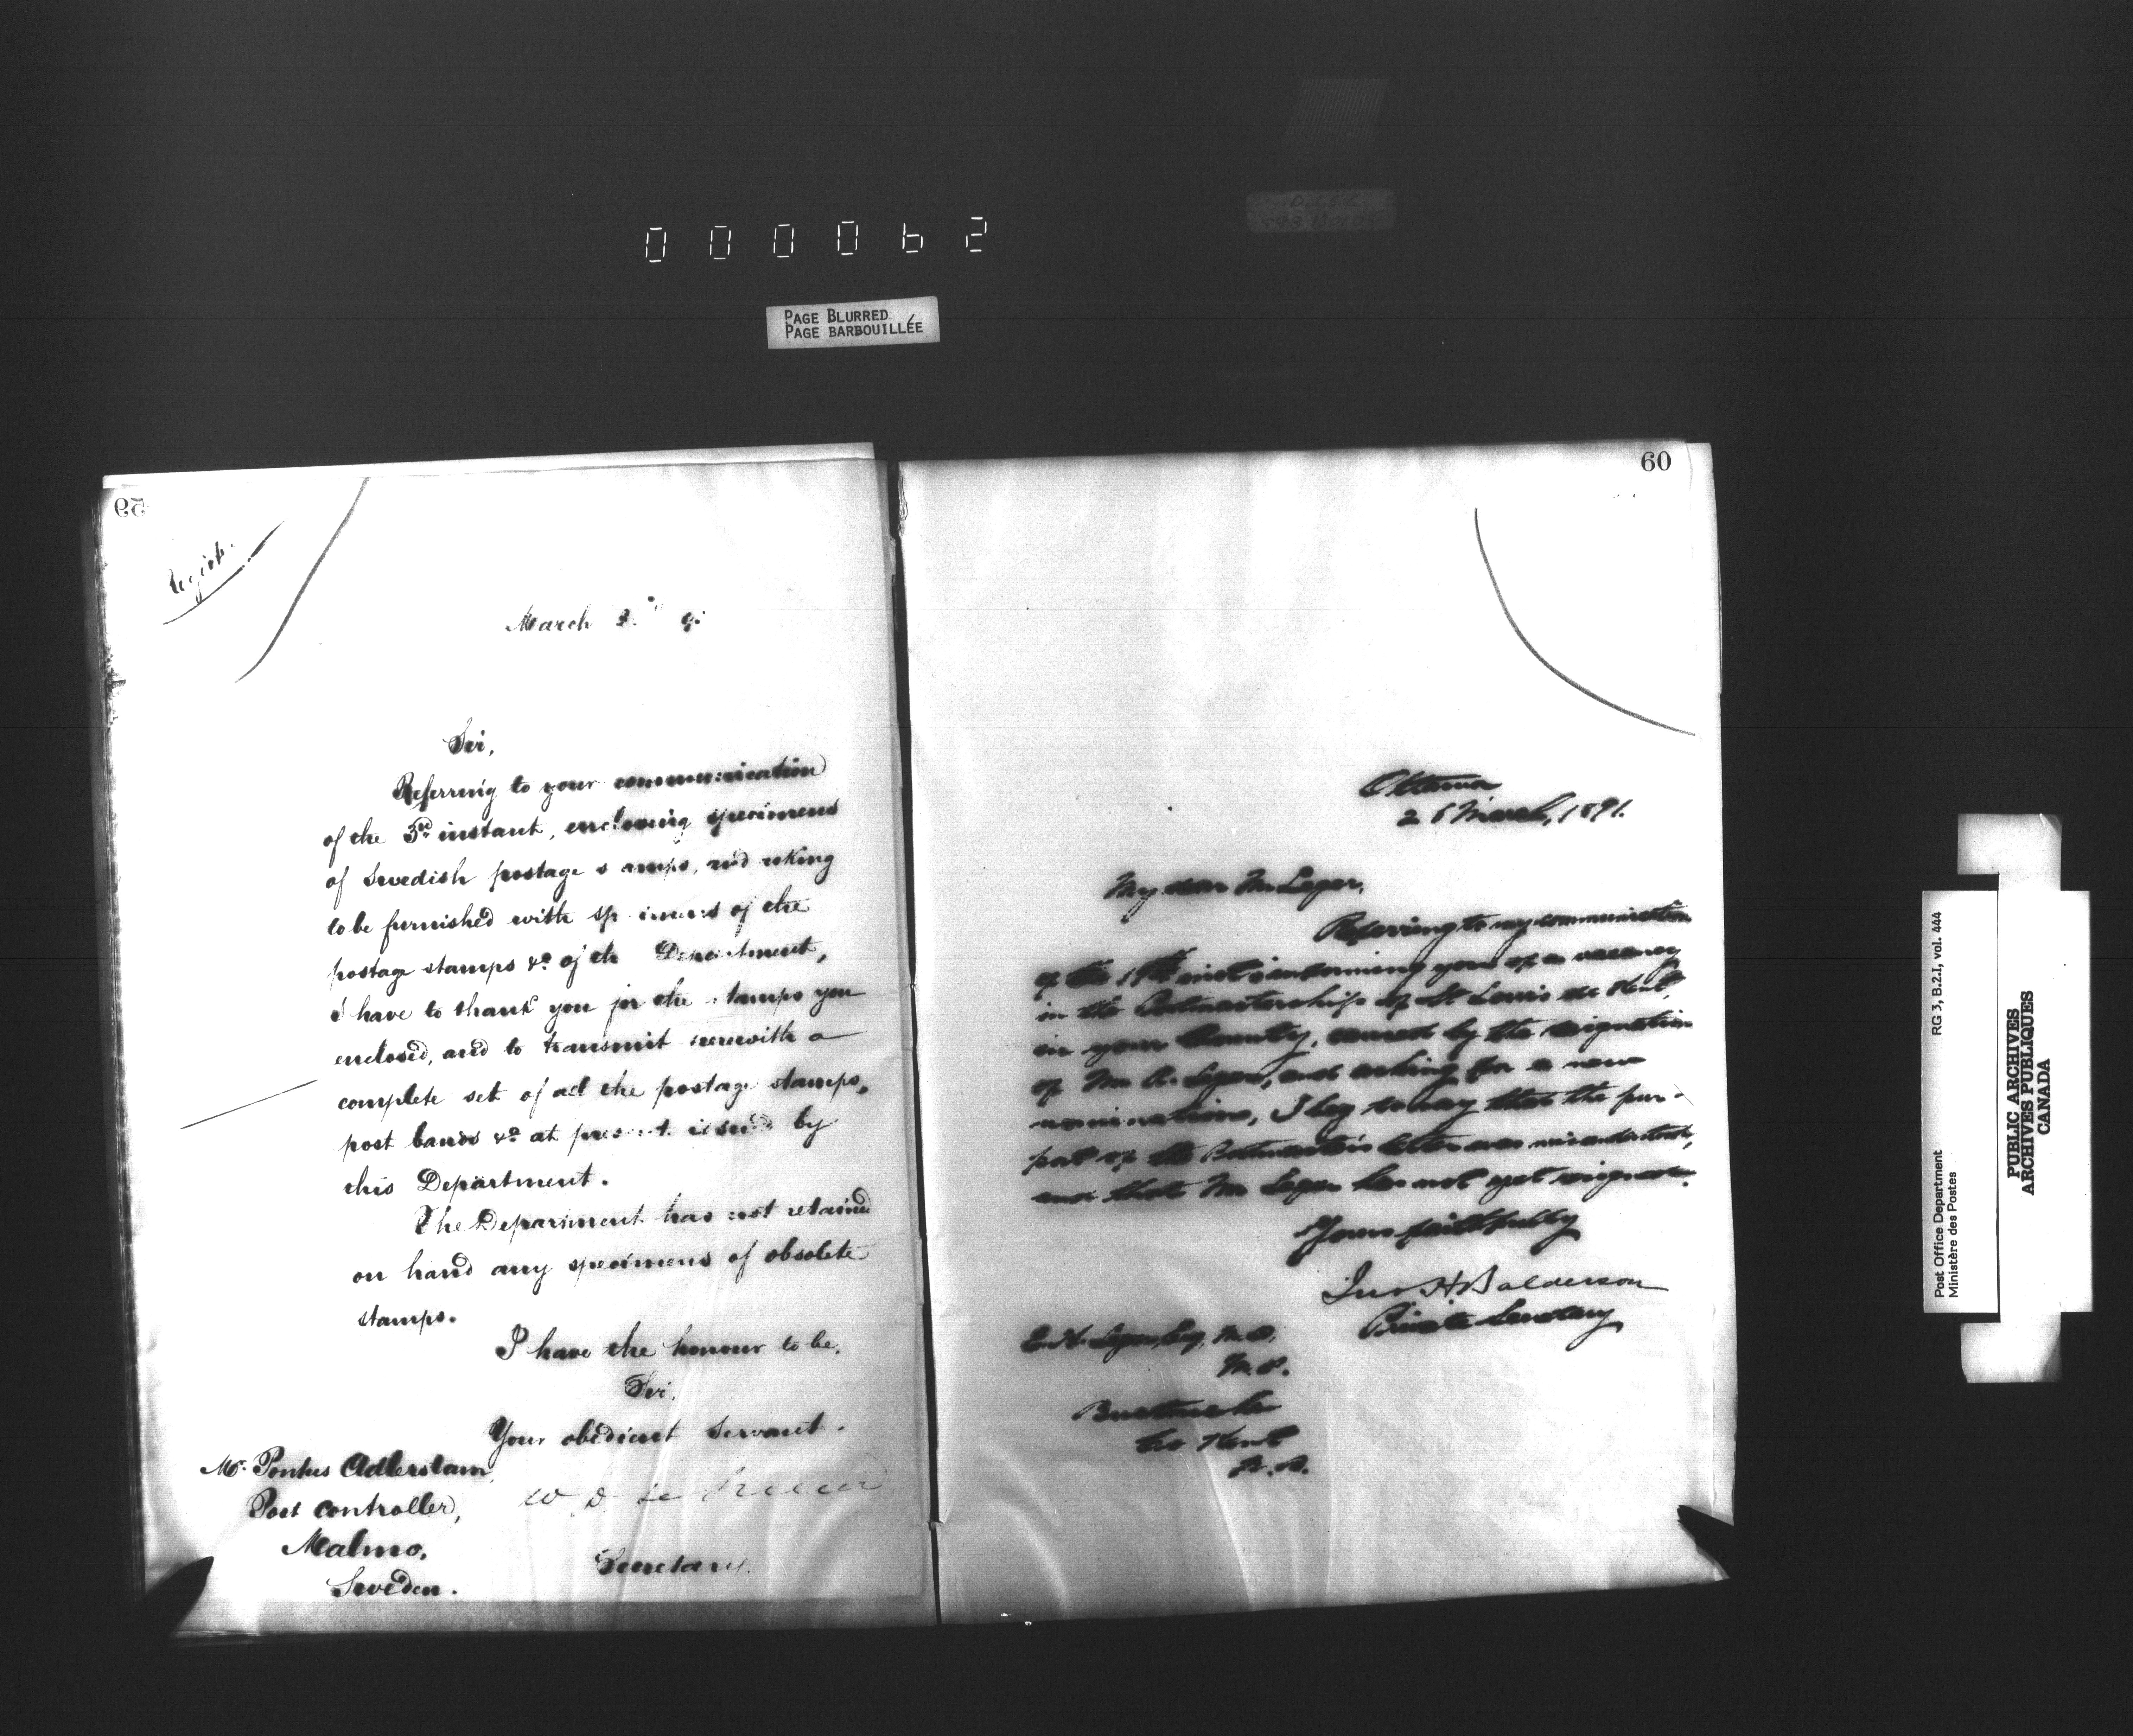 000062
PAGE BLURRED
PAGE BARBOUILLÉE
59
Regist.
March
Sir,
Referring to your communication
of the 3rd instant, enclosing specimens
of Swedish postage s amps, and asking
to be furnished with sp imens of the
postage stamps &c of th Department,
I have to thank you for the stamps you
enclosed, and to transmit herewith a
complete set of all the postage stamps,
post bands &c at present issued by
this Department.
The Department has not retained
on hand any specimens of obsolete
stamps.
I have the honour to be,
Sir,
Your obedient Servant.
W D Le Sueur
Secretary.
Mr. Pontus Adlerstam,
Post Controller,
Malmo,
Sweden.
60
Ottawa
26 March, 1891.
My dear Mr Leger,
Referring to my communication
of the 19th inst informing you of a vacancy
in the Postmastership of St Louis de Kent,
in your County, caused by the resignation
of Mr A. Leger, and asking for a new
nomination, I beg to say that the pur-
port of the Postmaster's letter was misunderstood,
and that Mr Leger has not yet resigned.
Yours faithfully
Jno H Balderson
Private Secretary
E. H. Leger, Esq, M.D.
M.P.
Buctouche
Co Kent
N.B.
Post Office Department RG 3, B.2.I, vol. 444
Ministère des Postes
PUBLIC ARCHIVES
ARCHIVES PUBLIQUES
CANADA